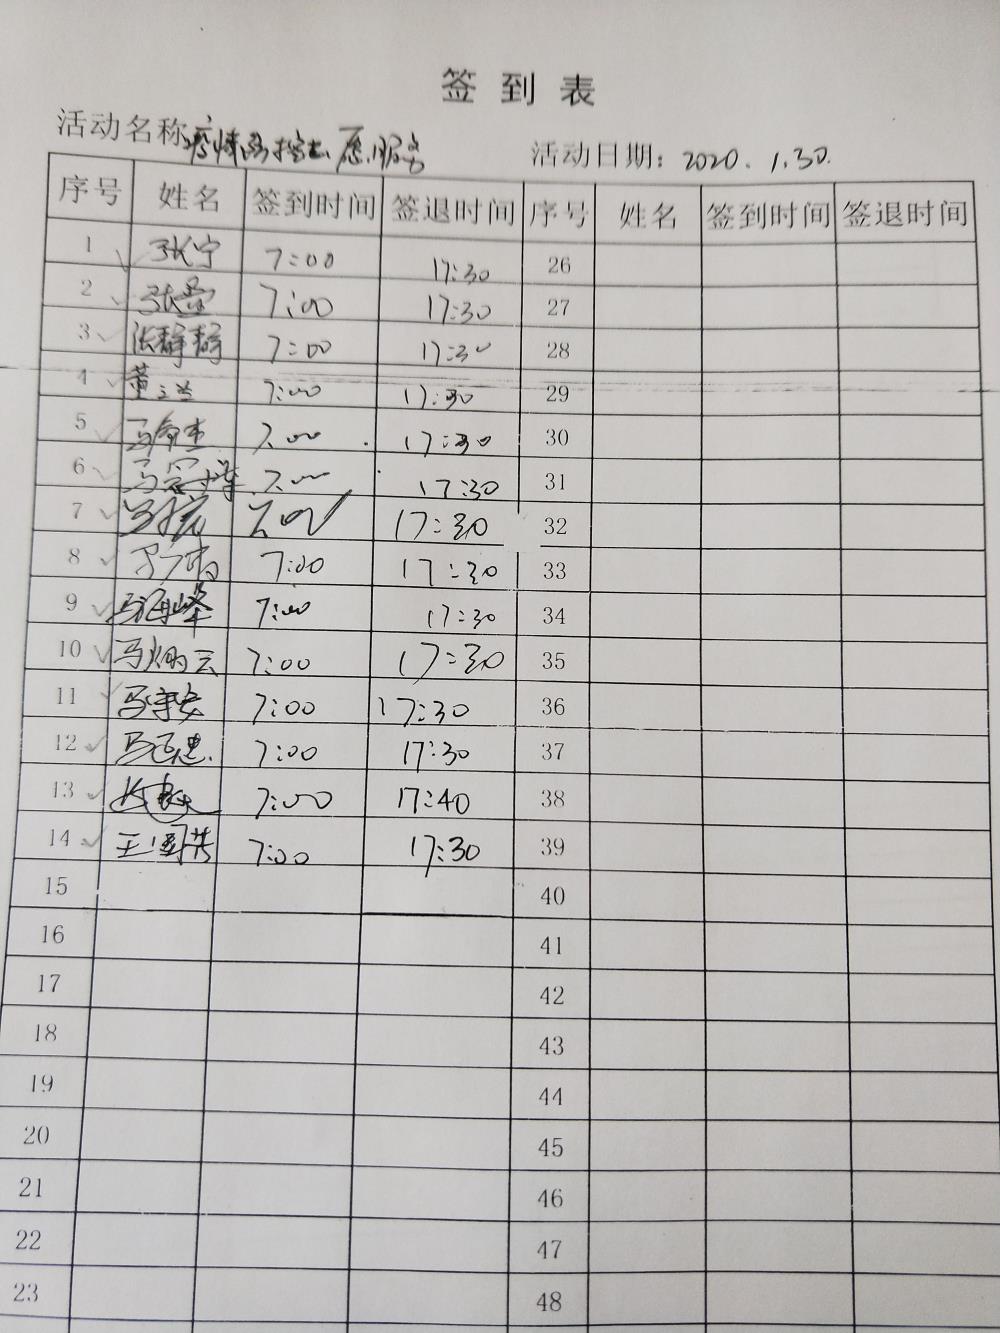 签到表
活动名称:疫情防控志愿服务 活动日期: 2020.1.30.
序号 姓名 签到时间 签退时间 序号 姓名 签到时间 签退时间
1 张宁 7:00 17:30 26
2 张 7:00 17:30 27
3 张静静 7:00 17:30 28
4 董 7:00 17:30 29
5 马 7:00 17:30 30
6 马 7:00 17:30 31
7 7:00 17:30 32
8 7:00 17:30 33
9 马海峰 7:00 17:30 34
10 马炳云 7:00 17:30 35
11 马 7:00 17:30 36
12 马 7:00 17:30 37
13 7:00 17:40 38
14 王国 7:00 17:30 39
15 40
16 41
17 42
18 43
19 44
20 45
21 46
22 47
23 48